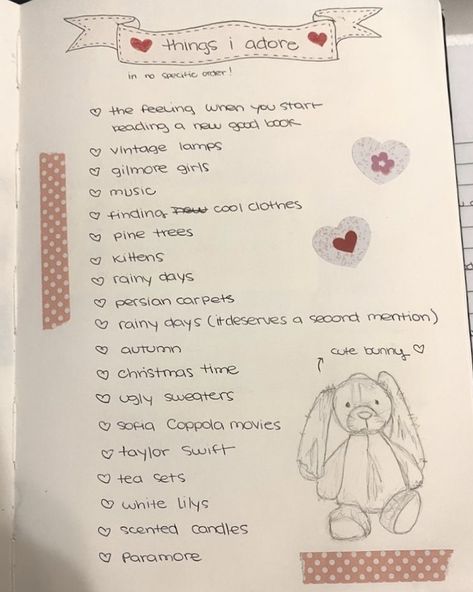 things i adore
in no specific order!
the feeling when you start
reading a new good book
vintage lamps
gilmore girls
music
finding new cool clothes
pine trees
kittens
rainy days
persian carpets
rainy days (it deserves a second mention)
autumn
cute bunny
christmas time
ugly sweaters
sofia Coppola movies
taylor swift
tea sets
white lilys
scented candles
paramore